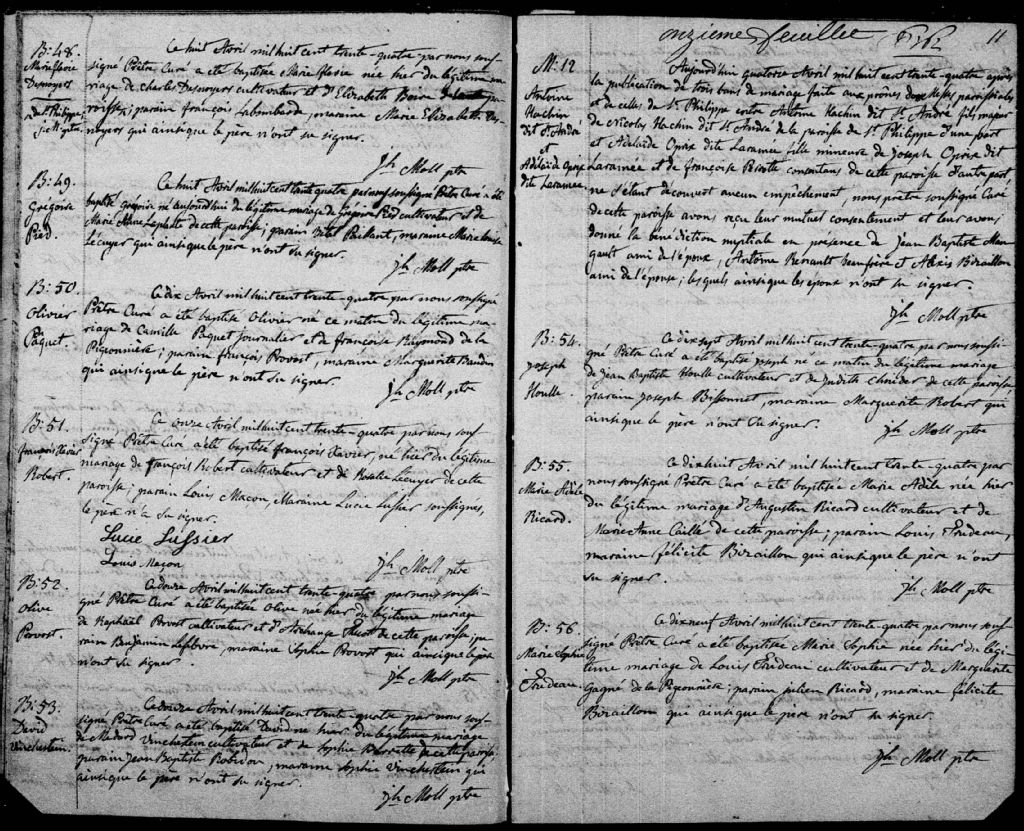 B: 48.
Marie flavie
Desnoyers
de St Philippe,
Ce huit Avril mil huit cent trente-quatre par nous sous-
signé Prêtre Curé a été baptisée Marie flavie née hier du légitime ma-
riage de Charles Desnoyers cultivateur et d'Elizabeth
roisse; parain françois Labombarde, maraine Marie Elizabeth Des-
noyers qui ainsique le père n'ont su signer.
Jh Moll ptre
B: 49.
Grégoire
Pied
Ce huit Avril mil huit cent trente quatre par nous soussigné Prêtre Curé a été
baptisé Grégoire né aujourd'hui du légitime mariage de Grégoire Pied cultivateur et de
Marie Anne Laplante de cette paroisse; parain Vital Paillant, maraine Marie Louise
Lécuyer qui ainsique le père n'ont su signer.
Jh Moll ptre
B: 50
Olivier
Paquet.
Ce dix Avril mil huit cent trente-quatre par nous soussigné
Prêtre Curé a été baptisé Olivier né ce matin du légitime ma-
riage de Camille Paquet journalier et de françoise Raymond de la
Pigeonnière; parain françois Provost, maraine Marguerite Baudin
qui ainsique le père n'ont su signer.
Jh Moll ptre
B: 51.
françois Xavier
Robert.
Ce onze Avril mil huit cent trente-quatre par nous sous-
signé Prêtre Curé a été baptisé françois Xavier, né hier du légitime
mariage de françois Robert cultivateur et de Rosalie Lécuyer de cette
paroisse; parain Louis Maçon, Maraine Lucie Lussier soussignés,
le père n'a su signer.
Lucie Lussier
Louis Maçon
Jh Moll ptre
B: 52.
Olive
Provost.
Ce douze Avril mil huit cent trente-quatre par nous soussi-
gné Prêtre Curé a été baptisée Olive née hier du légitime mariage
de Raphaël Provost cultivateur et d'Archange de cette paroisse; pa-
rain Benjamin Lefebvre, maraine Sophie Provost qui ainsique le père
n'ont su signer.
Jh Moll ptre
B: 53.
David
Vinchestein.
Ce douze Avril mil huit cent trente-quatre par nous sous-
signé Prêtre Curé a été baptisé David né hier du légitime mariage
de Médard Vinchestein cultivateur et de Sophie de cette paroisse,
parain Jean Baptiste Robidou, maraine Sophie Vinchestein qui
ainsique le père n'ont su signer.
Jh Moll ptre
onzième feuillet 11
M: 12
Antoine
Hachin
dit St André
et
Adélaïde Oprix
dite Laramée
Aujourd'hui quatorze Avril mil huit cent trente-quatre après
la publication de trois bans de mariage faite aux prônes des messes paroissiales
et de celles de St Philippe entre Antoine Hachin dit St André fils majeur
de Nicolas Hachin dit St André de la paroisse de St Philippe d'une part
et Adélaïde Oprix dite Laramée fille mineure de Joseph Oprix dit
Laramée et de françoise consentans de cette paroisse d'autre part
ne s'étant découvert aucun empêchement, nous prêtre soussigné Curé
de cette paroisse avons reçu leur mutuel consentement et leur avons
donné la bénédiction nuptiale en présence de Jean Baptiste Man-
gault ami de l'époux, Antoine Renault beaufrère et Alexis Bizaillon
ami de l'épouse; lesquels ainsique les époux n'ont su signer.
Jh Moll ptre
B: 54.
Joseph
Houlle.
Ce dix sept Avril mil huit cent trente-quatre par nous soussi-
gné Prêtre Curé a été baptisé Joseph né ce matin du légitime mariage
de Jean Baptiste Houlle cultivateur et de Judith de cette paroisse
parain Joseph Bissonnet, maraine Marguerite Robert qui
ainsique le père n'ont su signer.
Jh Moll ptre
B: 55.
Marie Adèle
Ricard.
Ce dix huit Avril mil huit cent trente-quatre par
nous soussigné Prêtre Curé a été baptisée Marie Adèle née hier
du légitime mariage d'Augustin Ricard cultivateur et de
Marie Anne Caillé de cette paroisse; parain Louis Trudeau,
maraine félicité Bizaillon qui ainsique le père n'ont
su signer.
Jh Moll ptre
B: 56.
Marie Sophie
Trudeau.
Ce dix neuf Avril mil huit cent trente-quatre par nous sous-
signé Prêtre Curé a été baptisée Marie Sophie née hier du légi-
time mariage de Louis Trudeau cultivateur et de Marguerite
Gagné de la Pigeonnière; parain julien Ricard, maraine félicité
Bizaillon qui ainsique le père n'ont su signer.
Jh Moll ptre